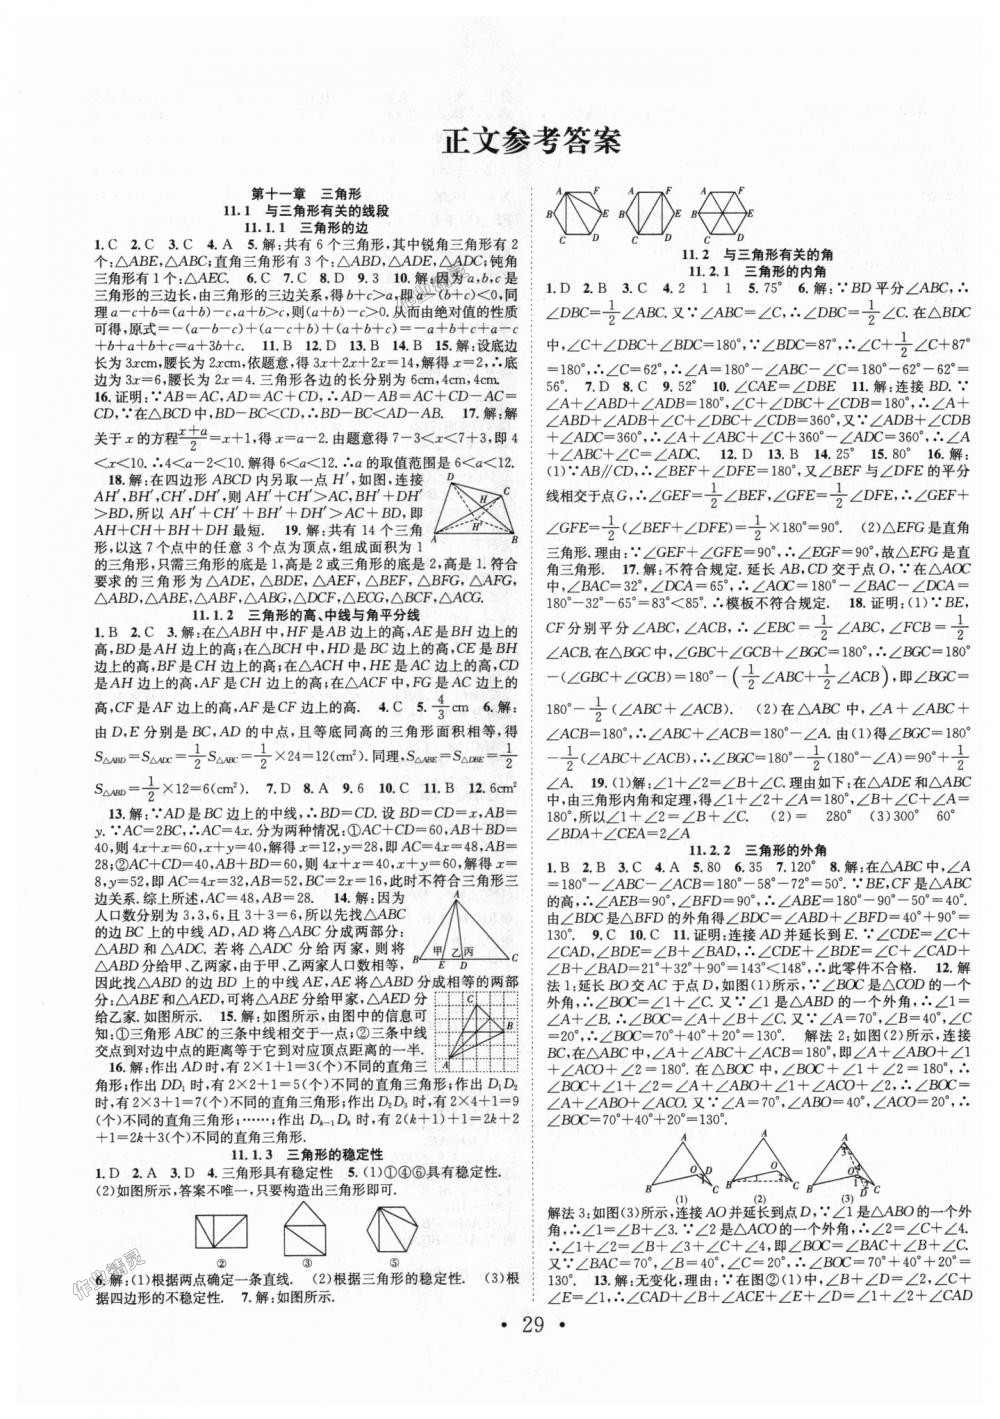 正文参考答案
第十一章　三角形
11.1　与三角形有关的线段
11.1.1　三角形的边
1. C　2. C　3. C　4. A　5. 解:共有 6 个三角形,其中锐角三角形有 2
个:△ABE,△ABC;直角三角形有 3 个:△ABD,△ADE,△ADC;钝角
三角形有 1 个:△AEC.　6. C　7. C　8. D　9. 3　10. 解:因为 a,b,c 是
三角形的三边长,由三角形的三边关系,得 b+c>a,即 a-(b+c)<0,同
理 a-c+b=(a+b)-c,a+b>c,则(a+b)-c>0. 从而由绝对值的性质
可得,原式=-(a-b-c)+(a-c+b)+(a+b+c)=-a+b+c+a-c
+b+a+b+c=a+3b+c.　11. B　12. D　13. B　14. B　15. 解:设底边
长为 3xcm,腰长为 2xcm,依题意,得 3x+2x+2x=14,解得 x=2,∴底
边为 3x=6,腰长为 2x=4. 三角形各边的长分别为 6cm,4cm,4cm.
16. 证明:∵AB=AC,AD=AC+CD,∴AD-AB=AC+CD-AC=
CD,∵在△BCD 中,BD-BC<CD,∴BD-BC<AD-AB.　17. 解:解
关于 x 的方程(x+a)/2=x+1,得 x=a-2. 由题意得 7-3<x<7+3,即 4
<x<10. ∴4<a-2<10. 解得 6<a<12. ∴a 的取值范围是 6<a<12.
18. 解:在四边形 ABCD 内另取一点 H′,如图,连接
AH′,BH′,CH′,DH′,则 AH′+CH′>AC,BH′+DH′
>BD,所以 AH′+CH′+BH′+DH′>AC+BD,即
AH+CH+BH+DH 最短.　19. 解:共有 14 个三角
形,以这 7 个点中的任意 3 个点为顶点,组成面积为 1
的三角形,只需三角形的底是 1,高是 2 或三角形的底是 2,高是 1. 符合
要求的三角形为△ADE,△BDE,△AEF,△BEF,△BFG,△AFG,
△ABD,△ABE,△ABF,△ABG,△DCF,△ECG,△FCB,△ACG.
11.1.2　三角形的高、中线与角平分线
1. B　2. C　3. 解:在△ABH 中,HF 是 AB 边上的高,AE 是 BH 边上的
高,BD 是 AH 边上的高;在△BCH 中,HD 是 BC 边上的高,CE 是 BH
边上的高,BF 是 CH 边上的高;在△ACH 中,HE 是 AC 边上的高,CD
是 AH 边上的高,AF 是 CH 边上的高;在△ACF 中,FG 是 AC 边上的
高,CF 是 AF 边上的高,AF 是 CF 边上的高.　4. C　5. 4/3 cm　6. 解:
由 D,E 分别是 BC,AD 的中点,且等底同高的三角形面积相等,得
S△ABD=S△ADC=1/2 S△ABC=1/2×24=12(cm²). 同理,S△ABE=S△DBE=1/2
S△ABD=1/2×12=6(cm²).　7. D　8. A　9. 6　10. C　11. B　12. 6cm²
13. 解:∵AD 是 BC 边上的中线,∴BD=CD. 设 BD=CD=x,AB=
y. ∵AC=2BC,∴AC=4x. 分为两种情况:①AC+CD=60,AB+BD=
40,则 4x+x=60,x+y=40,解得 x=12,y=28,即 AC=4x=48,AB=
28;②AC+CD=40,AB+BD=60,则 4x+x=40,x+y=60,解得 x=
8,y=52,即 AC=4x=32,AB=52,BC=2x=16,此时不符合三角形三
边关系. 综上所述,AC=48,AB=28.　14. 解:因为
人口数分别为 3,3,6,且 3+3=6,所以先找△ABC
的边 BC 上的中线 AD,AD 将△ABC 分成两部分:
△ABD 和△ADC. 若将△ADC 分给丙家,则将
△ABD 分给甲、乙两家,由于甲、乙两家人口数相等,
因此找△ABD 的边 BD 上的中线 AE,AE 将△ABD 分成相等的两部
分:△ABE 和△AED,可将△ABE 分给甲家,△AED 分
给乙家. 如图所示.　15. 解:如图所示,由图中的信息可
知:①三角形 ABC 的三条中线相交于一点;②三条中线
交点到对边中点的距离等于它到对应顶点距离的一半.
16. 解:作出 DD 时,有 2×1+1=3(个)不同的直角三
角形;作出 DD₁ 时,有 2×2+1=5(个)不同的直角三角形;作出 D₁D₂
时,有 2×3+1=7(个)不同的直角三角形;作出 D₂D₃ 时,有 2×4+1=9
(个)不同的直角三角形;……;作出 Dₖ₋₁Dₖ 时,有 2(k+1)+1=2k+2
+1=2k+3(个)不同的直角三角形.
11.1.3　三角形的稳定性
1. D　2. A　3. D　4. 三角形具有稳定性　5. (1)①④⑥具有稳定性.
(2)如图所示,答案不唯一,只要构造出三角形即可.
②　③　⑤
6. 解:(1)根据两点确定一条直线.　(2)根据三角形的稳定性.　(3)根
据四边形的不稳定性.　7. 解:如图所示.
11.2　与三角形有关的角
11.2.1　三角形的内角
1. D　2. B　3. C　4. 2　1　1　5. 75°　6. 解:∵BD 平分∠ABC,∴
∠DBC=1/2∠ABC. 又∵∠ABC=∠C,∴∠DBC=1/2∠C. 在△BDC
中,∠C+∠DBC+∠BDC=180°,∵∠BDC=87°,∴∠C+1/2∠C+87°
=180°,∴∠C=62°,∴∠A=180°-∠ABC-∠C=180°-62°-62°=
56°.　7. D　8. C　9. 52°　10. ∠CAE=∠DBE　11. 解:连接 BD. ∵
∠A+∠ABD+∠ADB=180°,∠C+∠DBC+∠CDB=180°,∴∠A+
∠ABD+∠ADB+∠C+∠DBC+∠CDB=360°,又∵∠ADB+∠CDB
+∠ADC=360°,∴∠A+∠ABC+∠C+360°-∠ADC=360°,∴∠A
+∠ABC+∠C=∠ADC.　12. D　13. B　14. 25°　15. 80°　16. 解:
(1)∵AB∥CD,∴∠BEF+∠DFE=180°,又∠BEF 与∠DFE 的平分
线相交于点 G,∴∠GEF=1/2∠BEF,∠GFE=1/2∠DFE,∴∠GEF+
∠GFE=1/2(∠BEF+∠DFE)=1/2×180°=90°.　(2)△EFG 是直角
三角形. 理由:∵∠GEF+∠GFE=90°,∴∠EGF=90°,故△EFG 是直
角三角形.　17. 解:不符合规定. 延长 AB,CD 交于点 O,∵在△AOC
中,∠BAC=32°,∠DCA=65°,∴∠AOC=180°-∠BAC-∠DCA=
180°-32°-65°=83°<85°. ∴模板不符合规定.　18. 证明:(1)∵BE,
CF 分别平分∠ABC,∠ACB,∴∠EBC=1/2∠ABC,∠FCB=1/2
∠ACB. 在△BGC 中,∠GBC+∠GCB+∠BGC=180°,∴∠BGC=180°
-(∠GBC+∠GCB)=180°-(1/2∠ABC+1/2∠ACB),即∠BGC=
180°-1/2(∠ABC+∠ACB).　(2)在△ABC 中,∠A+∠ABC+
∠ACB=180°,∴∠ABC+∠ACB=180°-∠A. 由(1)得∠BGC=180°
-1/2(∠ABC+∠ACB),∴∠BGC=180°-1/2(180°-∠A)=90°+1/2
∠A.　19. (1)解:∠1+∠2=∠B+∠C. 理由如下:在△ADE 和△ABC
中,由三角形内角和定理,得∠1+∠2+∠A=180°,∠B+∠C+∠A=
180°,所以∠1+∠2=∠B+∠C.　(2)=　280°　(3)300°　60°
∠BDA+∠CEA=2∠A
11.2.2　三角形的外角
1. B　2. B　3. C　4. A　5. 80　6. 35　7. 120°　8. 解:在△ABC 中,∠A
=180°-∠ABC-∠ACB=180°-58°-72°=50°. ∵BE,CF 是△ABC
的高,∴∠AEB=90°,∠BFD=90°,∴∠ABE=180°-90°-50°=40°.
由∠BDC 是△BFD 的外角得∠BDC=∠ABD+∠BFD=40°+90°=
130°.　9. C　10. C　11. 证明:连接 AD 并延长到 E. ∵∠CDE=∠C+
∠CAD,∠BDE=∠B+∠BAD,∴∠CDE+∠BDE=∠C+∠CAD+
∠B+∠BAD=21°+32°+90°=143°<148°,∴此零件不合格.　12. 解
法 1:延长 BO 交 AC 于点 D,如图(1)所示,∵∠BOC 是△COD 的一个
外角,∴∠BOC=∠1+∠C. 又∵∠1 是△ABD 的一个外角,∴∠1=
∠A+∠B. ∴∠BOC=∠A+∠B+∠C. 又∵∠A=70°,∠B=40°,∠C
=20°,∴∠BOC=70°+40°+20°=130°.　解法 2:如图(2)所示,连接
BC,在△ABC 中,∠A+∠ABC+∠ACB=180°,即∠A+∠ABO+∠1
+∠ACO+∠2=180°. 在△BOC 中,∠BOC+∠1+∠2=180°,∴
∠BOC+∠1+∠2=∠A+∠ABO+∠1+∠ACO+∠2,∴∠BOC=
∠A+∠ABO+∠ACO. 又∵∠A=70°,∠ABO=40°,∠ACO=20°,∴
∠BOC=70°+40°+20°=130°.
(1)　(2)　(3)
解法 3:如图(3)所示,连接 AO 并延长到点 D,∵∠1 是△ABO 的一个外
角,∴∠1=∠B+∠3. ∵∠2 是△ACO 的一个外角,∴∠2=∠C+∠4.
∴∠1+∠2=∠B+∠3+∠C+∠4,即∠BOC=∠BAC+∠B+∠C.
又∵∠BAC=70°,∠B=40°,∠C=20°,∴∠BOC=70°+40°+20°=
130°.　13. 解:无变化,理由:∵在图②(1)中,∠B+∠D=∠2,∠C+
∠E=∠1,∴∠CAD+∠B+∠ACE+∠E+∠D=∠1+∠2+∠CAD
• 29 •